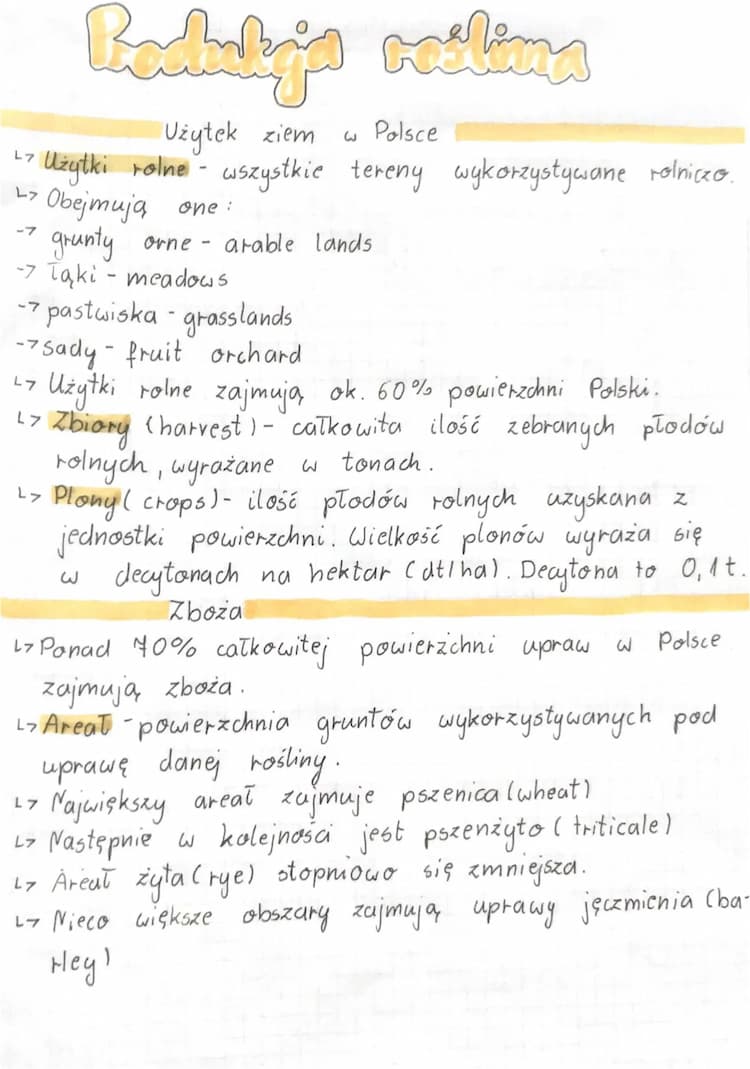 Produkcja roślinna
Użytek ziem w Polsce
↳ Użytki rolne - wszystkie tereny wykorzystywane rolniczo.
↳ Obejmują one:
-> grunty orne - arable lands
-> łąki - meadows
-> pastwiska - grasslands
-> sady - fruit orchard
↳ Użytki rolne zajmują ok. 60% powierzchni Polski.
↳ Zbiory (harvest) - całkowita ilość zebranych płodów
rolnych, wyrażane w tonach.
↳ Plony (crops) - ilość płodów rolnych uzyskana z
jednostki powierzchni. Wielkość plonów wyraża się
w decytonach na hektar (dt/ha). Decytona to 0,1t.
Zboża
↳ Ponad 70% całkowitej powierzchni upraw w Polsce
zajmują zboża.
↳ Areał - powierzchnia gruntów wykorzystywanych pod
uprawę danej rośliny.
↳ Największy areał zajmuje pszenica (wheat)
↳ Następnie w kolejności jest pszenżyto (triticale)
↳ Areał żyta (rye) stopniowo się zmniejsza.
↳ Nieco większe obszary zajmują uprawy jęczmienia (ba-
rley)